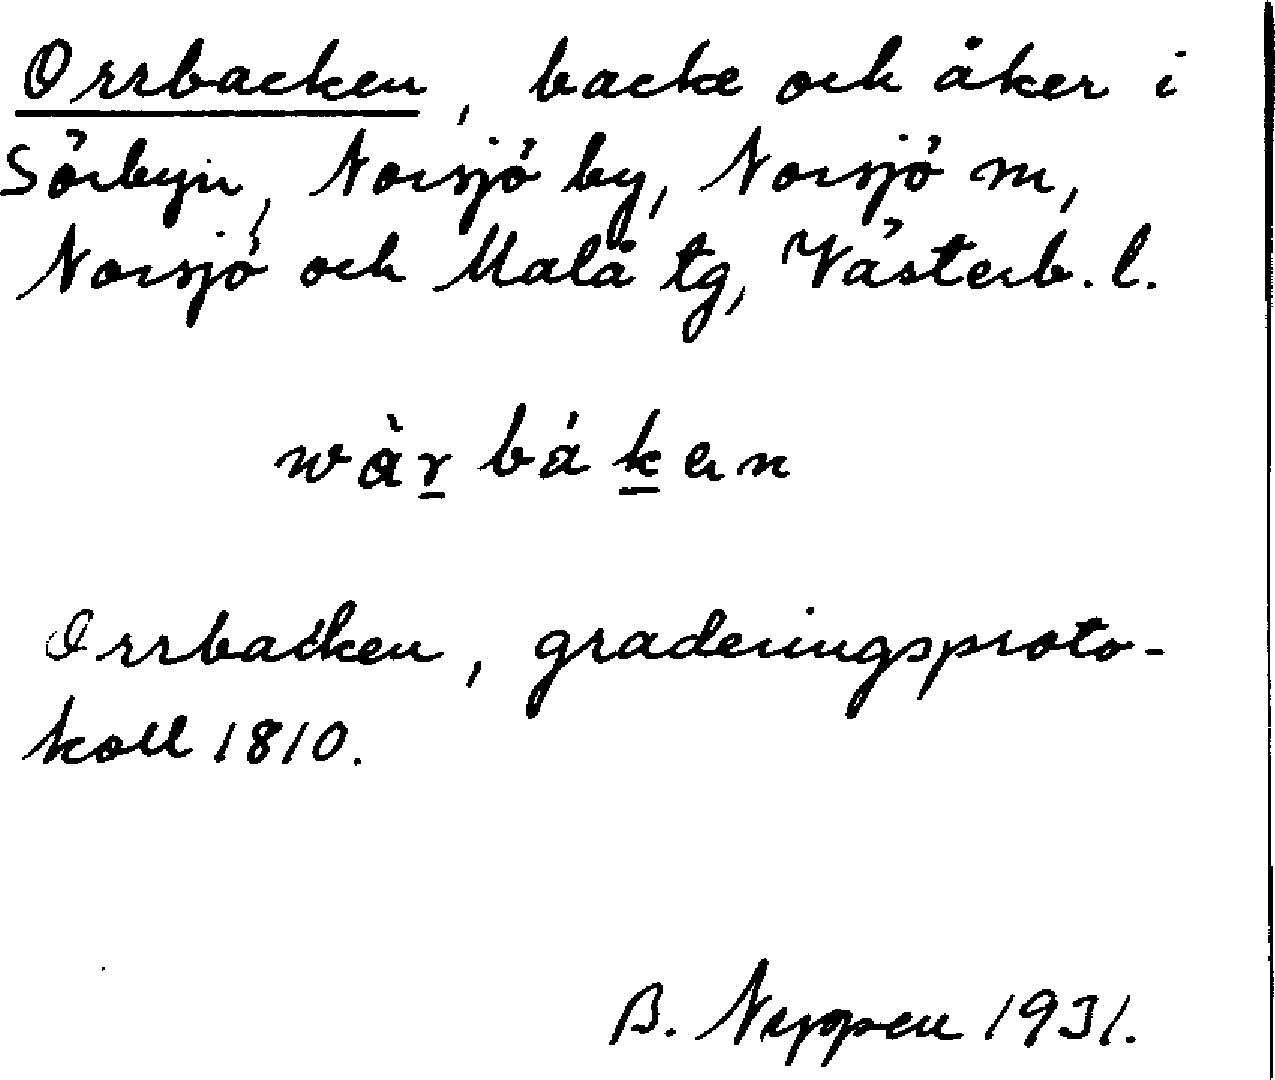 Orrbacken, backe och åker i
Sörbyn, Norsjö by, Norsjö sn,
Norsjö och Malå tg, Västerb. l.
wàr̲báḵen
Orrbacken, graderingsproto-
koll 1810.
B. Nyppen 1931.